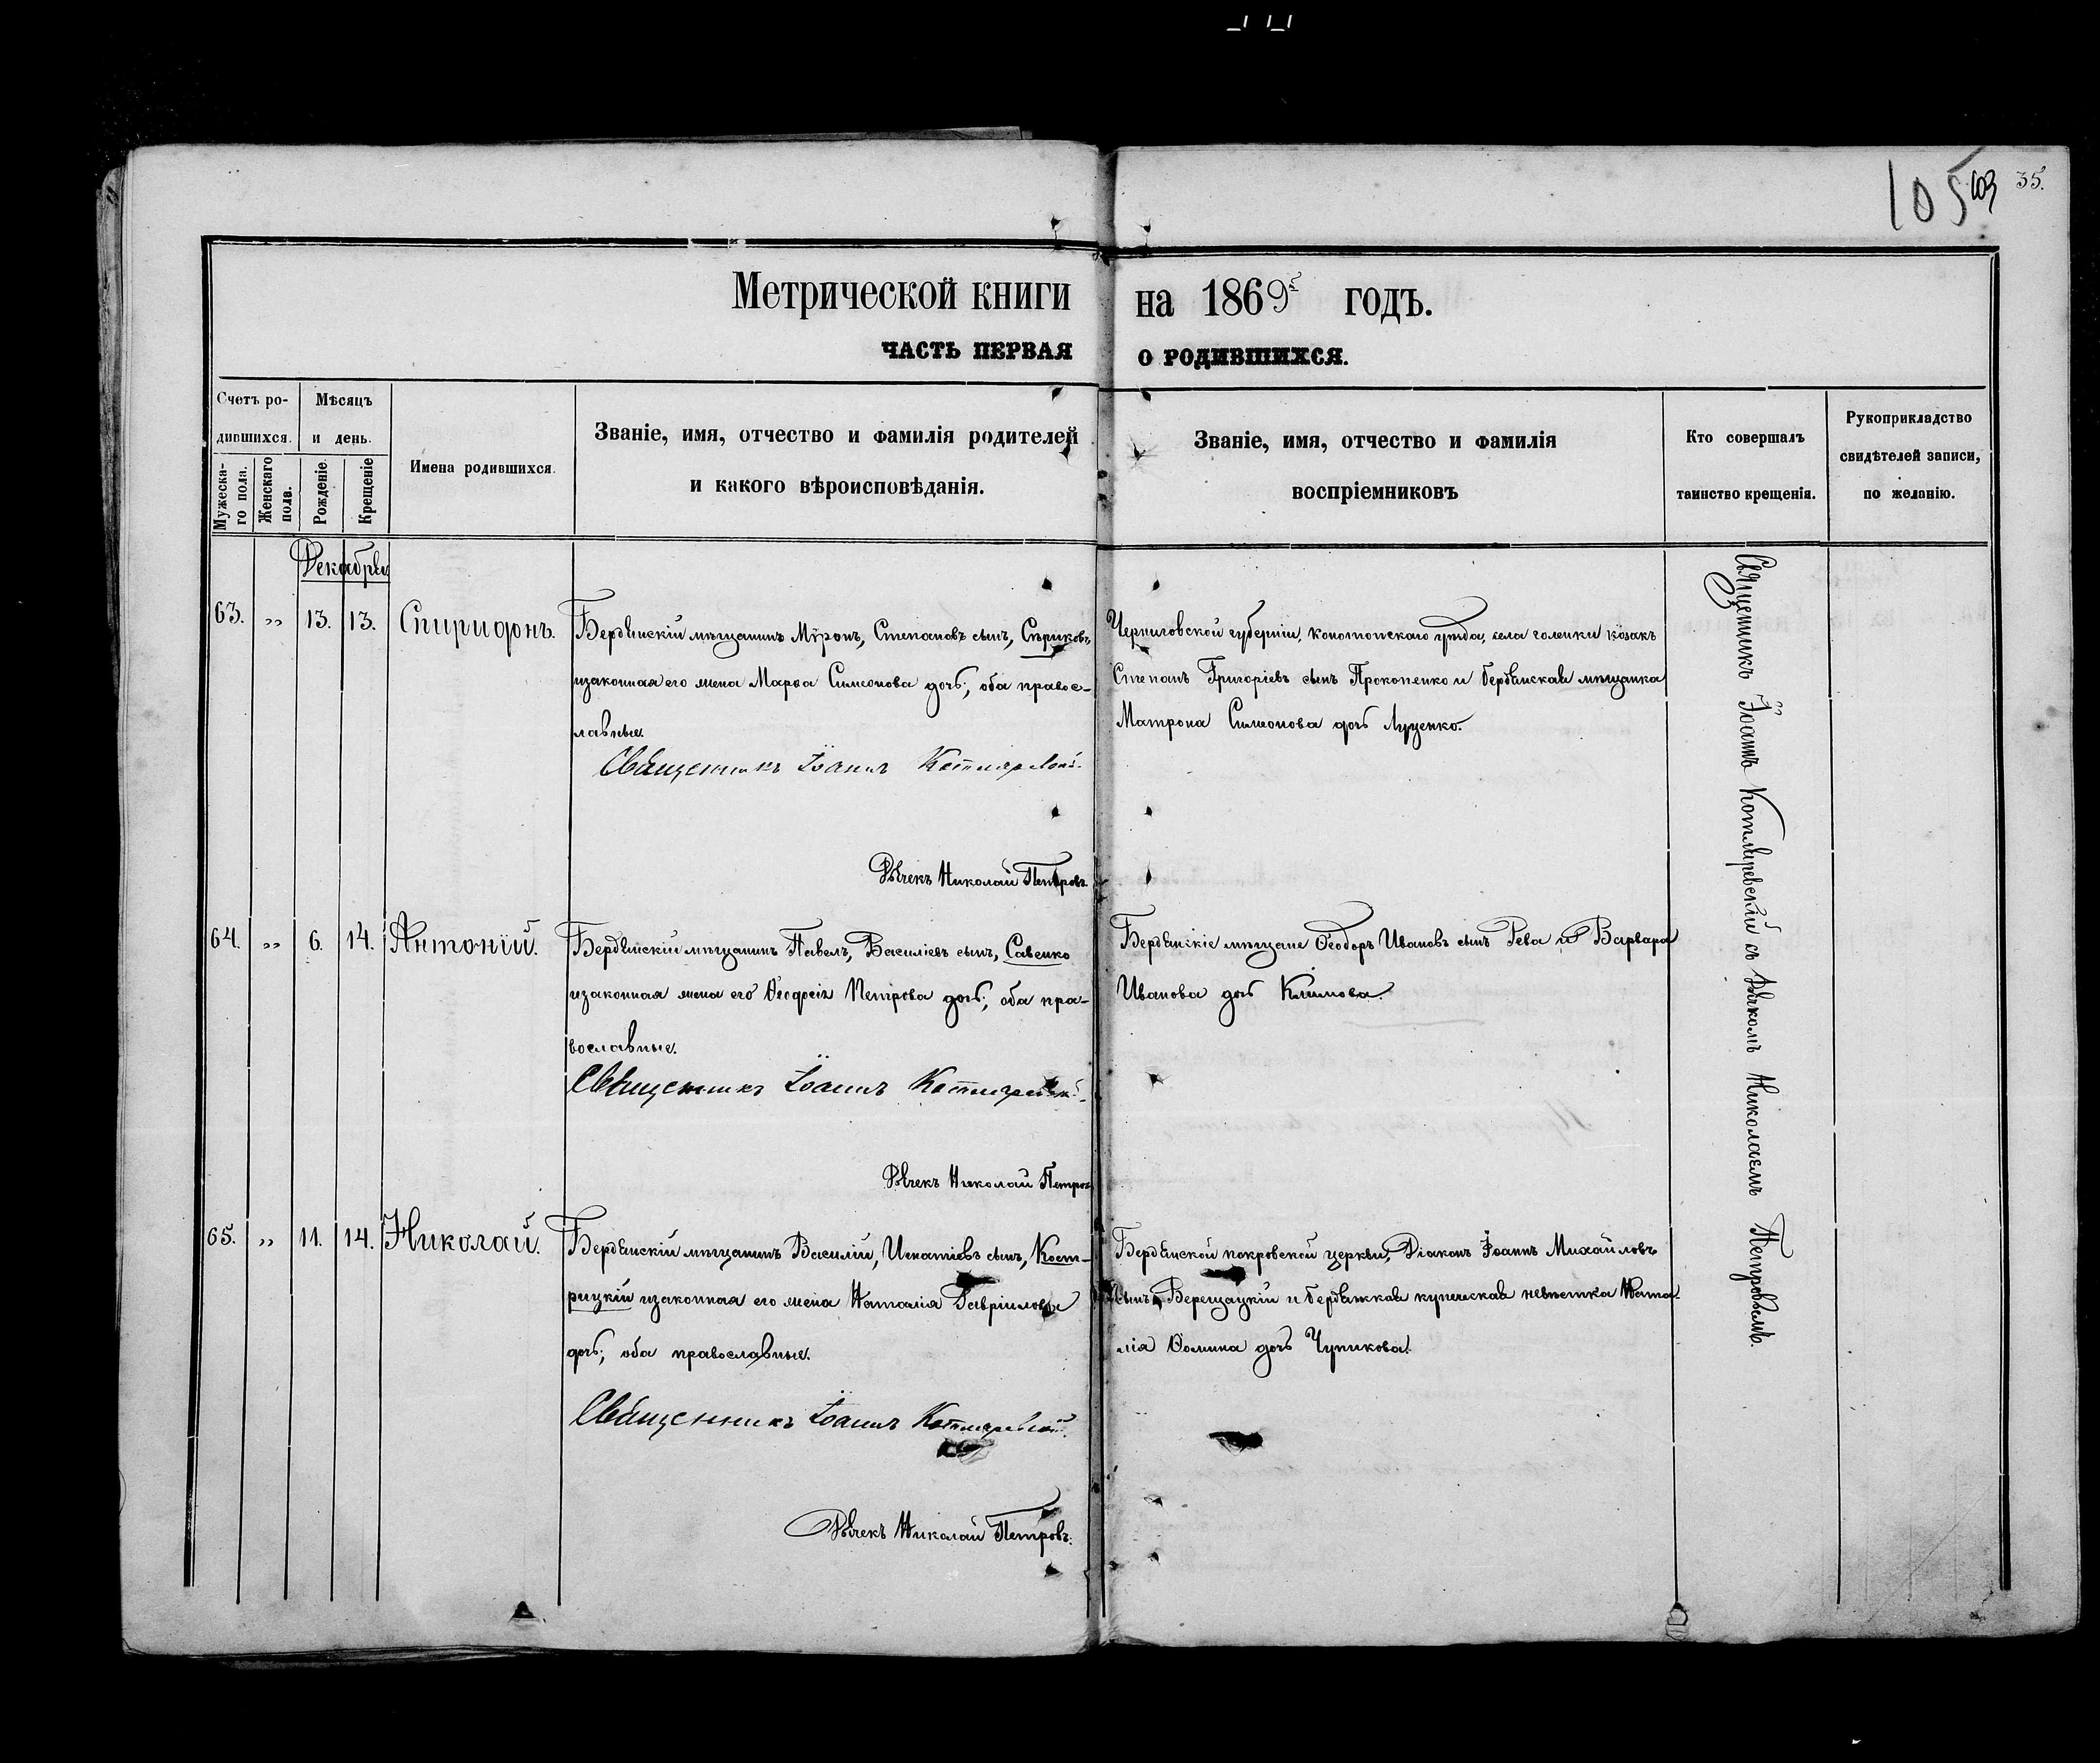 105 103 35.
Метрической книги на 1869 годъ.
ЧАСТЬ ПЕРВАЯ О РОДИВШИХСЯ.
Счетъ ро-
дившихся.
Мужеска-
го пола.
Женскаго
пола.
Мѣсяцъ
и день.
Рожденіе.
Крещеніе
Имена родившихся.
Званіе, имя, отчество и фамилія родителей
и какого вѣроисповѣданія.
Званіе, имя, отчество и фамилія
воспріемниковъ
Кто совершалъ
таинство крещенія.
Рукоприкладство
свидѣтелей записи,
по желанію.
Декабрь
63. „ 13. 13. Спиридонъ.
Бердянскій мѣщанинъ Мѵронъ, Степановъ сынъ, Сѣриковъ,
изаконная его жена Марѳа Симеонова дочь; оба правос-
лавные.
Священникъ Іоаннъ Котляревскій
Дьячекъ Николай Петровъ.
Черниговской губерніи, конотопскаго уѣзда, села голенки козакъ
Степанъ Григоріевъ сынъ Прокопенко и бердянская мѣщанка
Матрона Симеонова дочь Луценко.
64. „ 6. 14. Антоній.
Бердянскій мѣщанинъ Павелъ, Василіевъ сынъ, Савенко
изаконная жена его Ѳеодосія Петрова дочь; оба пра-
вославные.
Священникъ Іоаннъ Котляревскій
Дьячекъ Николай Петровъ
Бердянскіе мѣщане Ѳеодоръ Ивановъ сынъ Рева и Варвара
Иванова дочь Климова.
65. „ 11. 14. Николай.
Бердянскій мѣщанинъ Василій, Игнатіевъ сынъ, Кост-
рицкій изаконная его жена Наталія Гавріилова
дочь; оба православные.
Священникъ Іоаннъ Котляревскій.
Дьячекъ Николай Петровъ.
Бердянской покровской церкви, Діаконъ Іоаннъ Михайловъ
сынъ, Верещацкій и бердянская купеческая невѣстка Ната-
лія Ѳомина дочь Чупикова.
Священникъ Іоаннъ Котляревскій съ Дьячкомъ Николаемъ Петровымъ.